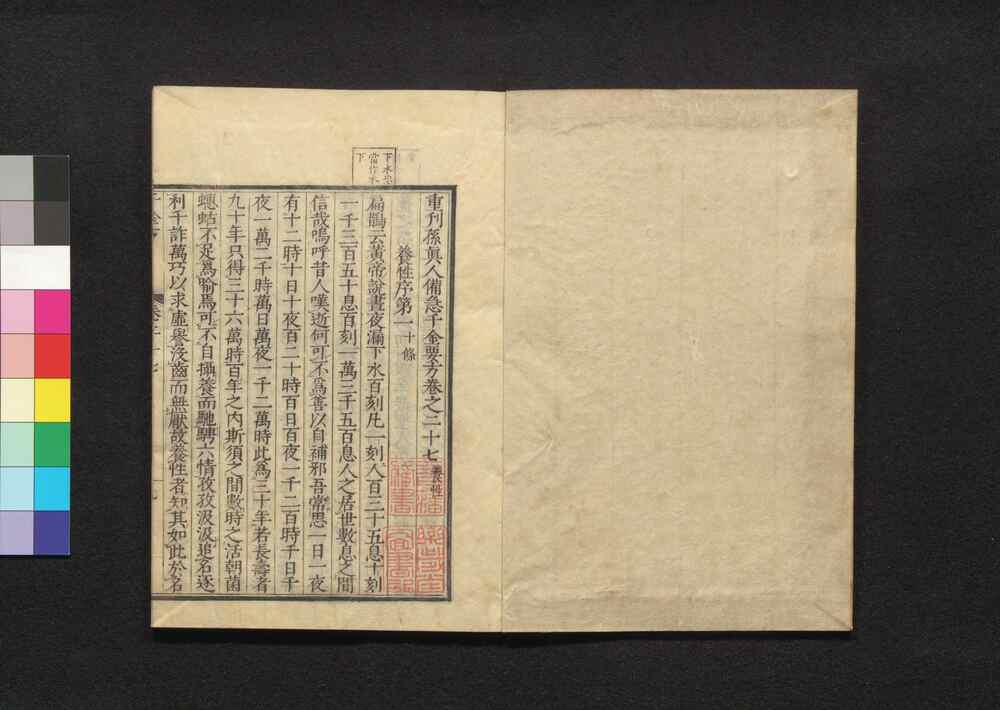 重刊孫真人備急千金要方卷之二十七 養性
養性序第一 十條
扁鵲云黃帝說晝夜漏下水百刻凡一刻人百三十五息十刻
一千三百五十息百刻一萬三千五百息人之居世數息之間
信哉嗚呼昔人嘆逝何可不為善以自補邪吾常思一日一夜
有十二時十日十夜百二十時百日百夜一千二百時千日千
夜一萬二千時萬日萬夜一十二萬時此為三十年若長壽者
九十年只得三十六萬時百年之內斯須之間數時之活朝菌
蟪蛄不足為喻焉可不自攝養而馳騁六情孜孜汲汲追名逐
利千詐萬巧以求虛譽沒齒而無厭故養性者知其如此於名